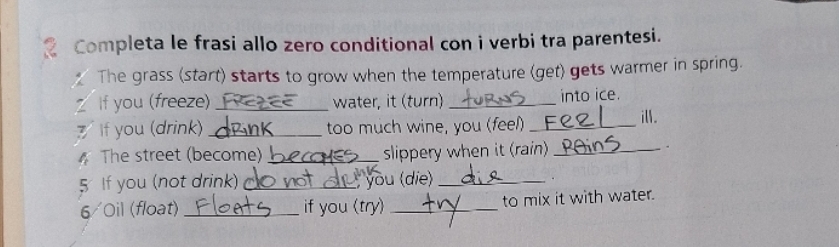 2 Completa le frasi allo zero conditional con i verbi tra parentesi.
1 The grass (start) starts to grow when the temperature (get) gets warmer in spring.
2 If you (freeze) FREZEE water, it (turn) tURNS into ice.
3 If you (drink) dRink too much wine, you (feel) FEEl ill.
4 The street (become) becomes slippery when it (rain) RAins.
5 If you (not drink) do not drink, you (die) die.
6 Oil (float) Floats if you (try) try to mix it with water.